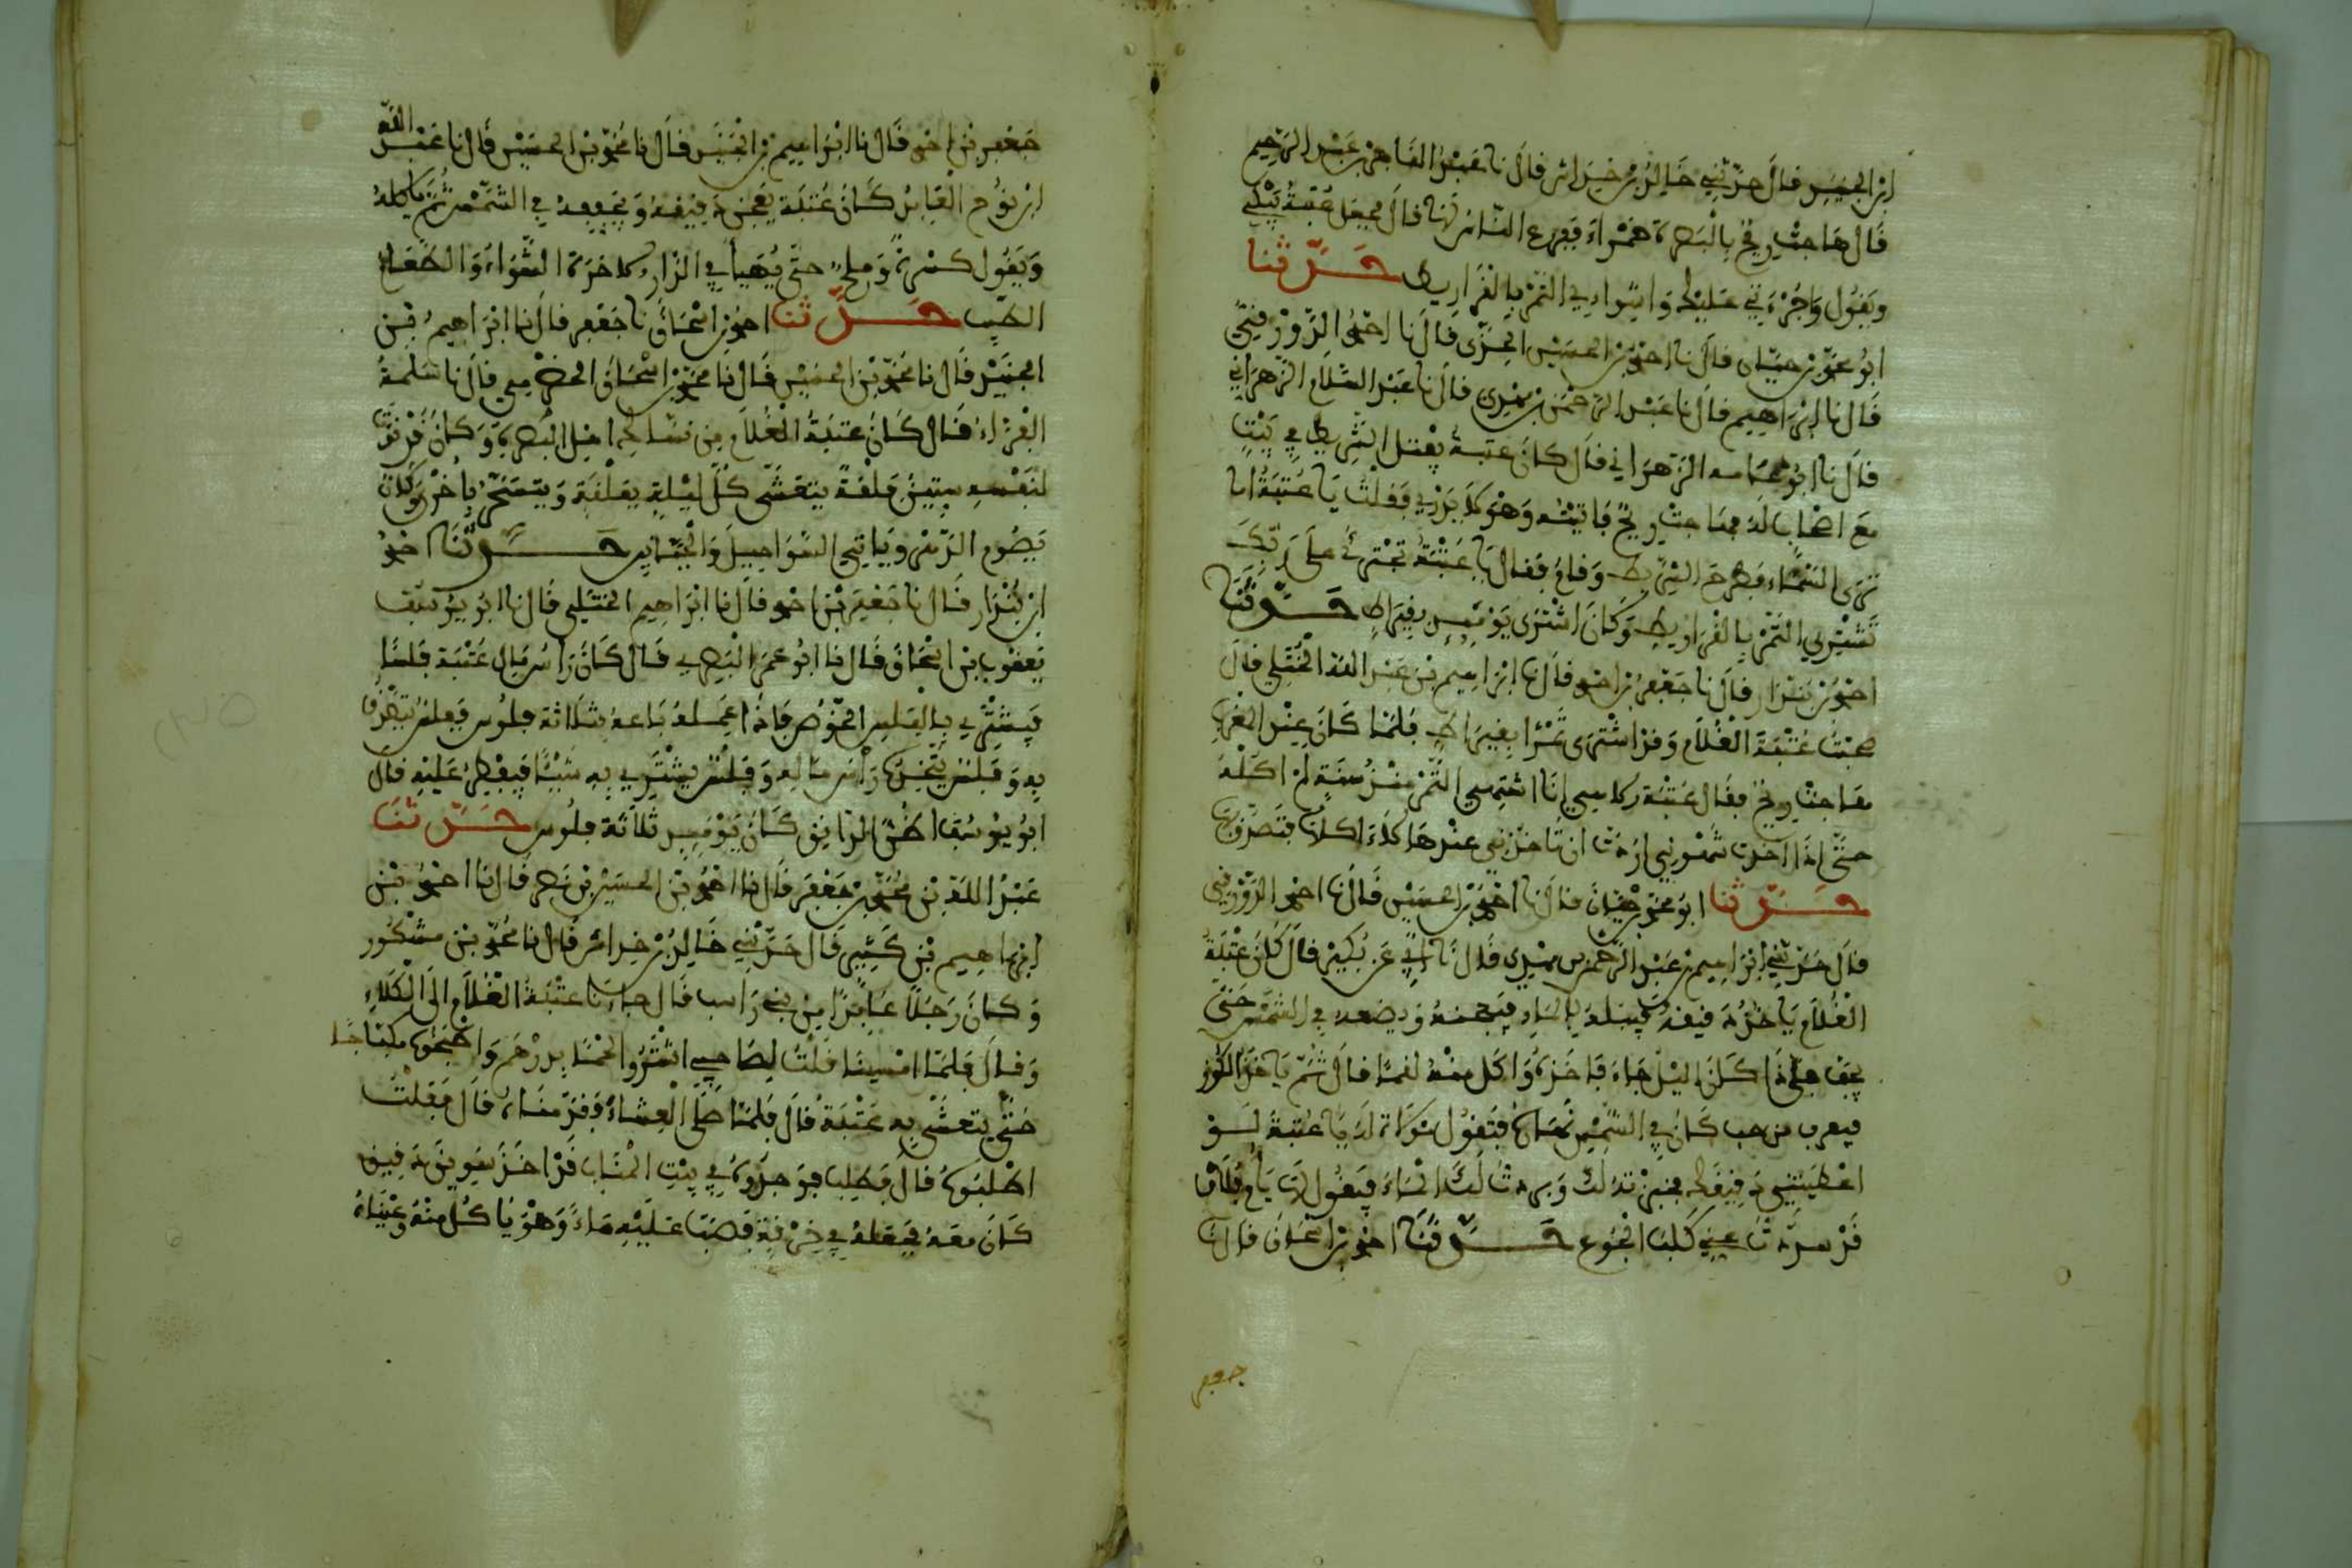 ابن الجنيد قال حدثني خالد بن خداش قال نا عبد القاهر بن عبد الرحيم
قال هاجت ريح بالبصرة حمراء ففزع الناس لها قال فجعل عتبة يبكي
ويقول واجرءتي عليك واشواءي التمر بالقراريط حدثنا
ابو محمد بن حيان قال نا احمد بن الحسين الحذى قال نا احمد الدورقي
قال نا ابراهيم قال نا عبد الرحمن بن مهدى قال نا عبد السلام الزهراني
قال نا ابو الزهراني قال كان عتبة يفتل الشريط في بيت
مع اصحاب له فهاجت ريح فاتيته وهو لا يدري فقلت يا عتبة اما
ترى السماء فطرح الشريط وقام فقال يا عتبة تجترئ على ربك
تشتري التمر بالقراريط وكان اشترى يومئذ بقيراط حدثنا
احمد بن بندار قال نا جعفر بن احمد قال نا ابراهيم بن عبد الله الختلي قال
صحبت عتبة الغلام وقد اشترى تمرا بقيراط فلما كان عند المغرب
هاجت ريح فقال عتبة الاهي انا اشتهي التمر منذ سنة لم اكله
حتى اذا اخذت شهوتي اردت ان تاخذني عندها لا اكلها فتصدق بها
حدثنا ابو محمد بن حيان قال نا احمد بن الحسين قال نا احمد الدورقي
قال حدثني ابراهيم بن عبد الرحمن بن مهدى قال نا ابي عن بكير قال كان عتبة
الغلام ياخذ دقيقه فيبله بالماء فيعجنه ويضعه في الشمس حتى
يجف فاذا كان اليل جاء فاخذه واكل منه لقما قال ثم ياخذ الكوز
فيغرف من حب كان في الشمس نهاره فتقول مولاة له يا عتبة لو
اعطيتني دقيقك فخبزته لك وبردت لك الماء فيقول لها يا ام فلان
قد سددت عني كلب الجوع حدثنا احمد بن اسحاق قال نا
جعفر
جعفر بن احمد قال نا ابراهيم بن الجنيد قال نا محمد بن الحسين قال نا عبد الله
ابن الفرج العابد كان عتبة يعجن دقيقه ويجففه في الشمس ثم ياكله
ويقول كسرة وملح حتى يهيأ في الدار الاخرة الشواء والطعام
الطيب حدثنا احمد بن اسحاق نا جعفر قال نا ابراهيم بن
الجنيد قال نا محمد بن الحسين قال نا محمد بن اسحاق الحضرمي قال نا سلمة
الفراء قال كان عتبة الغلام من نساك اهل البصرة وكان قد قوت
لنفسه ستين فلقة يتعشى كل ليلة بفلقة ويتسحر باخرى وكان
يصوم الدهر وياتي السواحل والجبابين حدثنا احمد
ابن بندار قال نا جعفر بن احمد قال نا ابراهيم الختلي قال نا ابو يوسف
يعقوب بن اسحاق قال نا ابو عمر البصري قال كان راس مال عتبة فلسا
فيشتري بالفلس الخوص فاذا عمله باعه بثلاثة فلوس ففلس يتصدق
به وفلس يتخذه راس ماله وفلس يشتري به شيئا فيفطر عليه قال
ابو يوسف اظن الدانق كان يومئذ ثلاثة فلوس حدثنا
عبد الله بن محمد بن جعفر قال نا احمد بن الحسين بن نصر قال نا احمد بن
ابراهيم بن كثير قال حدثني خالد بن خداش قال نا محمد بن مشكور
وكان رجلا عابدا من بني راسب قال جاءنا عتبة الغلام الى الكلاء
وقال فلما امسينا قلت لصاحبي اشتروا لحما بدرهم واطبخوه سكباجا
حتى يتعشى به عتبة قال فلما صلى العشاء فقدمناه قال فقلت
اطلبوه قال فطلب فوجدوه في بيت المتاب قد اخذ سويق دقيق
كان معه فجعله في خرقة فصب عليه ماء وهو ياكل منه وعيناه